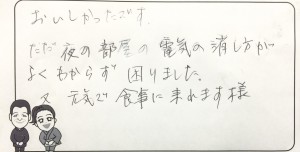 おいしかったです。
ただ夜の部屋の電気の消し方が
よくわからず困りました。
又元気で食事に来れます様